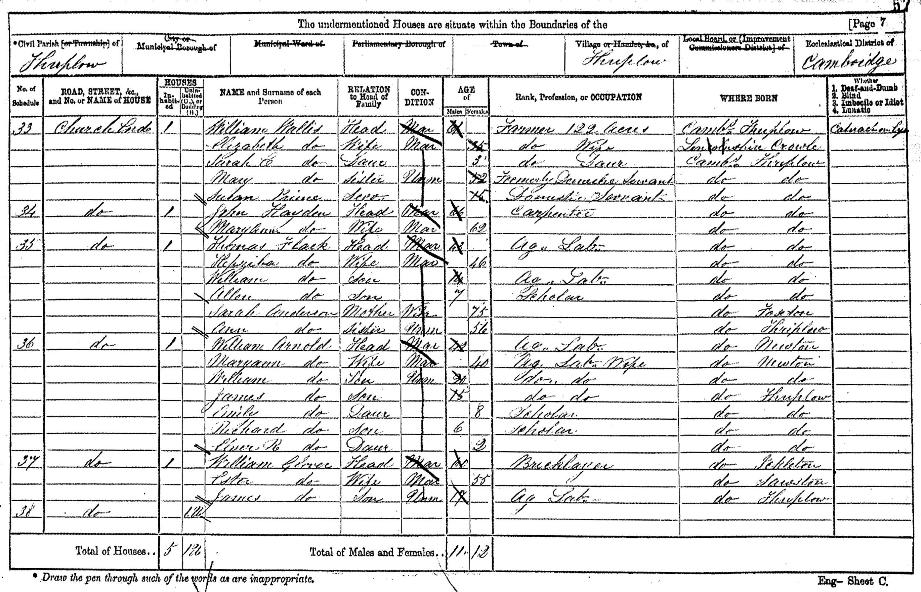 57
The undermentioned Houses are situate within the Boundaries of the [Page 7
*Civil Parish [or Township] of City or Municipal Borough of Municipal Ward of Parliamentary Borough of Town of Village or Hamlet, &c., of Local Board, or [Improvement Commissioners District] of Ecclesiastical District of
Thriplow Thriplow Cambridge
No. of Schedule ROAD, STREET, &c., and No. or NAME of HOUSE HOUSES Inhabited Uninhabited (U.), or Building (B.) NAME and Surname of each Person RELATION to Head of Family CONDITION AGE of Males Females Rank, Profession, or OCCUPATION WHERE BORN Whether 1. Deaf-and-Dumb 2. Blind 3. Imbecile or Idiot 4. Lunatic
33 Church 1 William Wallis Head Mar Farmer 122 Acres Cambs Thriplow
Elizabeth do Wife Mar do Wife Lincolnshire Crowle
Sarah E do Daur 3 do Daur Cambs Thriplow
Mary do Sister Unm Formerly Domestic Servant do do
Susan Prime Serv 15 Domestic Servant do do
34 do 1 John Haydon Head Mar Carpenter do do
Maryann do Wife Mar 62 do do
35 do 1 Thomas Flack Head Mar Ag. Lab. do do
Wife Mar 46 do do
William do Son Ag. Lab. do do
Allen do Son 7 Scholar do do
Sarah Anderson Mother 75 do Foxton
Ann do Sister Unm 56 do Thriplow
36 do 1 William Arnold Head Mar 42 Ag. Lab. do Newton
Maryann do Wife Mar 40 Ag. Lab. Wife do Newton
William do Son Unm 20 do do do do
James do Son 15 do do do Thriplow
Emily do Daur 8 Scholar do do
Richard do Son 6 Scholar do do
do Daur 2 do do
37 do 1 William Glover Head Mar Bricklayer do
Ester do Wife Mar 55 do Sawston
James do Son Unm Ag Lab. do Thriplow
38 do
Total of Houses.. 5 Total of Males and Females.. 11 12
* Draw the pen through such of the words as are inappropriate. Eng— Sheet C.